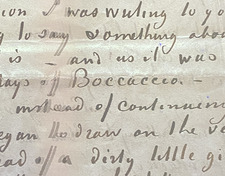 ion I was wuling to yo
g to say something abou
is – and as it was
days of Boccaccio. –
instead of continueing
egan to draw on the ve
ead of a dirty little gi